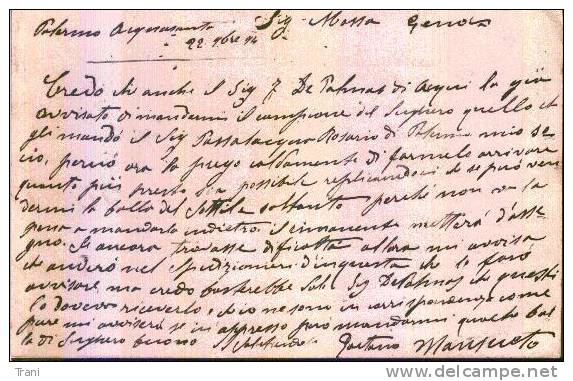 Palermo Acquasanta Sig. Massa Genova
22. 9bre 14
Credo che anche il Sig F De Palmas di Acqui la già
avvisato di mandarmi il campione del Sughero quello che
gli mandò il Sig Passalacqua Rosario di Palermo mio so
cio, perciò ora la prego caldamente di farmelo arrivare
quanto più presto sia possibile replicandoci se può ven
dermi la balla del Sottile soltanto perché non va la
pena a mandarlo indietro, il rimanente metterà d'asse
gno. Se ancora trovasse difficoltà allora mi avvisa
che anderò nel spedizioniere d'inquesta che lo farò
avvisare ma credo basterebbe Sig De Palmas che questi
lo doveva riceverlo, in corrispondenza come
pure mi avviserà se in appresso però mandarmi qualche bal
la di Sughero buono Gaetano Mansueto
Trani
delcampe.net